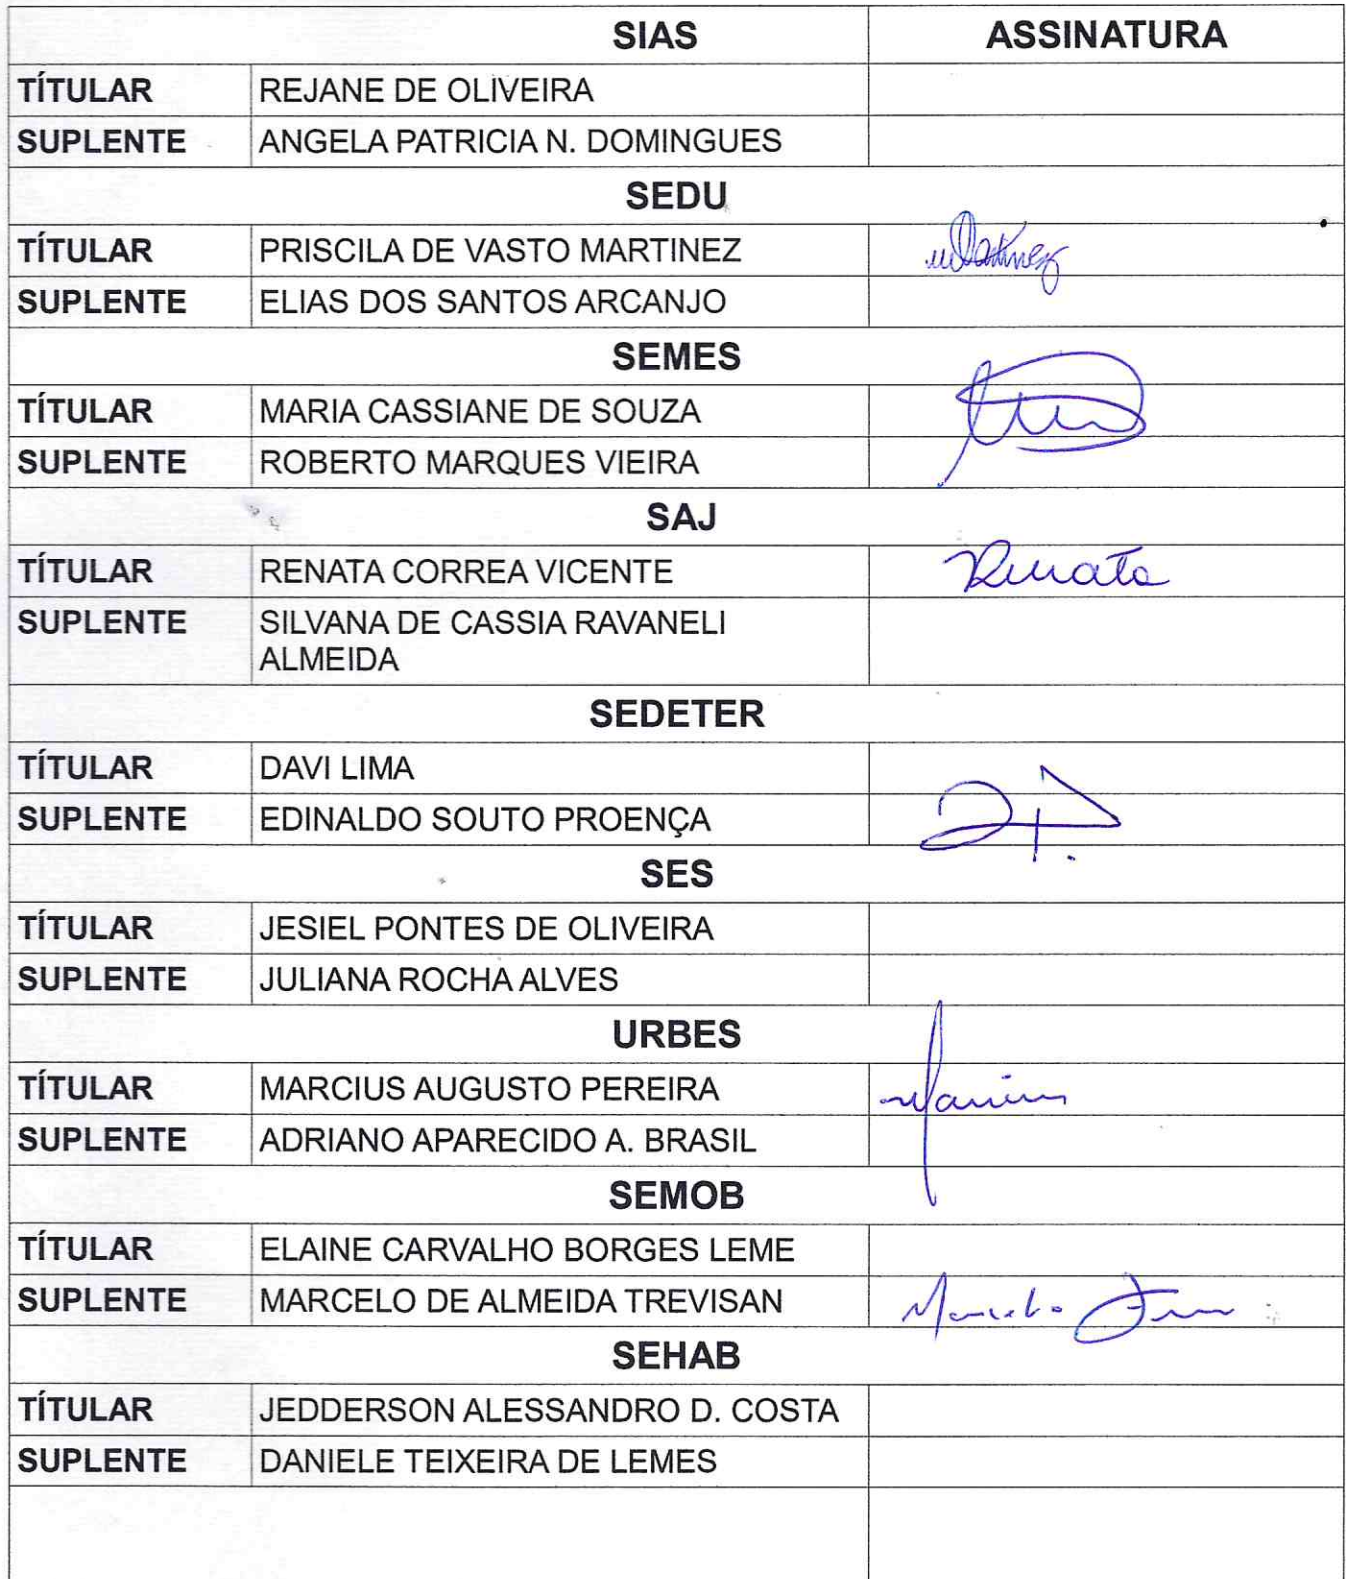 SIAS ASSINATURA
TÍTULAR REJANE DE OLIVEIRA
SUPLENTE ANGELA PATRICIA N. DOMINGUES
SEDU
TÍTULAR PRISCILA DE VASTO MARTINEZ Martinez
SUPLENTE ELIAS DOS SANTOS ARCANJO
SEMES
TÍTULAR MARIA CASSIANE DE SOUZA
SUPLENTE ROBERTO MARQUES VIEIRA
SAJ
TÍTULAR RENATA CORREA VICENTE Renata
SUPLENTE SILVANA DE CASSIA RAVANELI
ALMEIDA
SEDETER
TÍTULAR DAVI LIMA
SUPLENTE EDINALDO SOUTO PROENÇA
SES
TÍTULAR JESIEL PONTES DE OLIVEIRA
SUPLENTE JULIANA ROCHA ALVES
URBES
TÍTULAR MARCIUS AUGUSTO PEREIRA Marcius
SUPLENTE ADRIANO APARECIDO A. BRASIL
SEMOB
TÍTULAR ELAINE CARVALHO BORGES LEME
SUPLENTE MARCELO DE ALMEIDA TREVISAN Marcelo
SEHAB
TÍTULAR JEDDERSON ALESSANDRO D. COSTA
SUPLENTE DANIELE TEIXEIRA DE LEMES